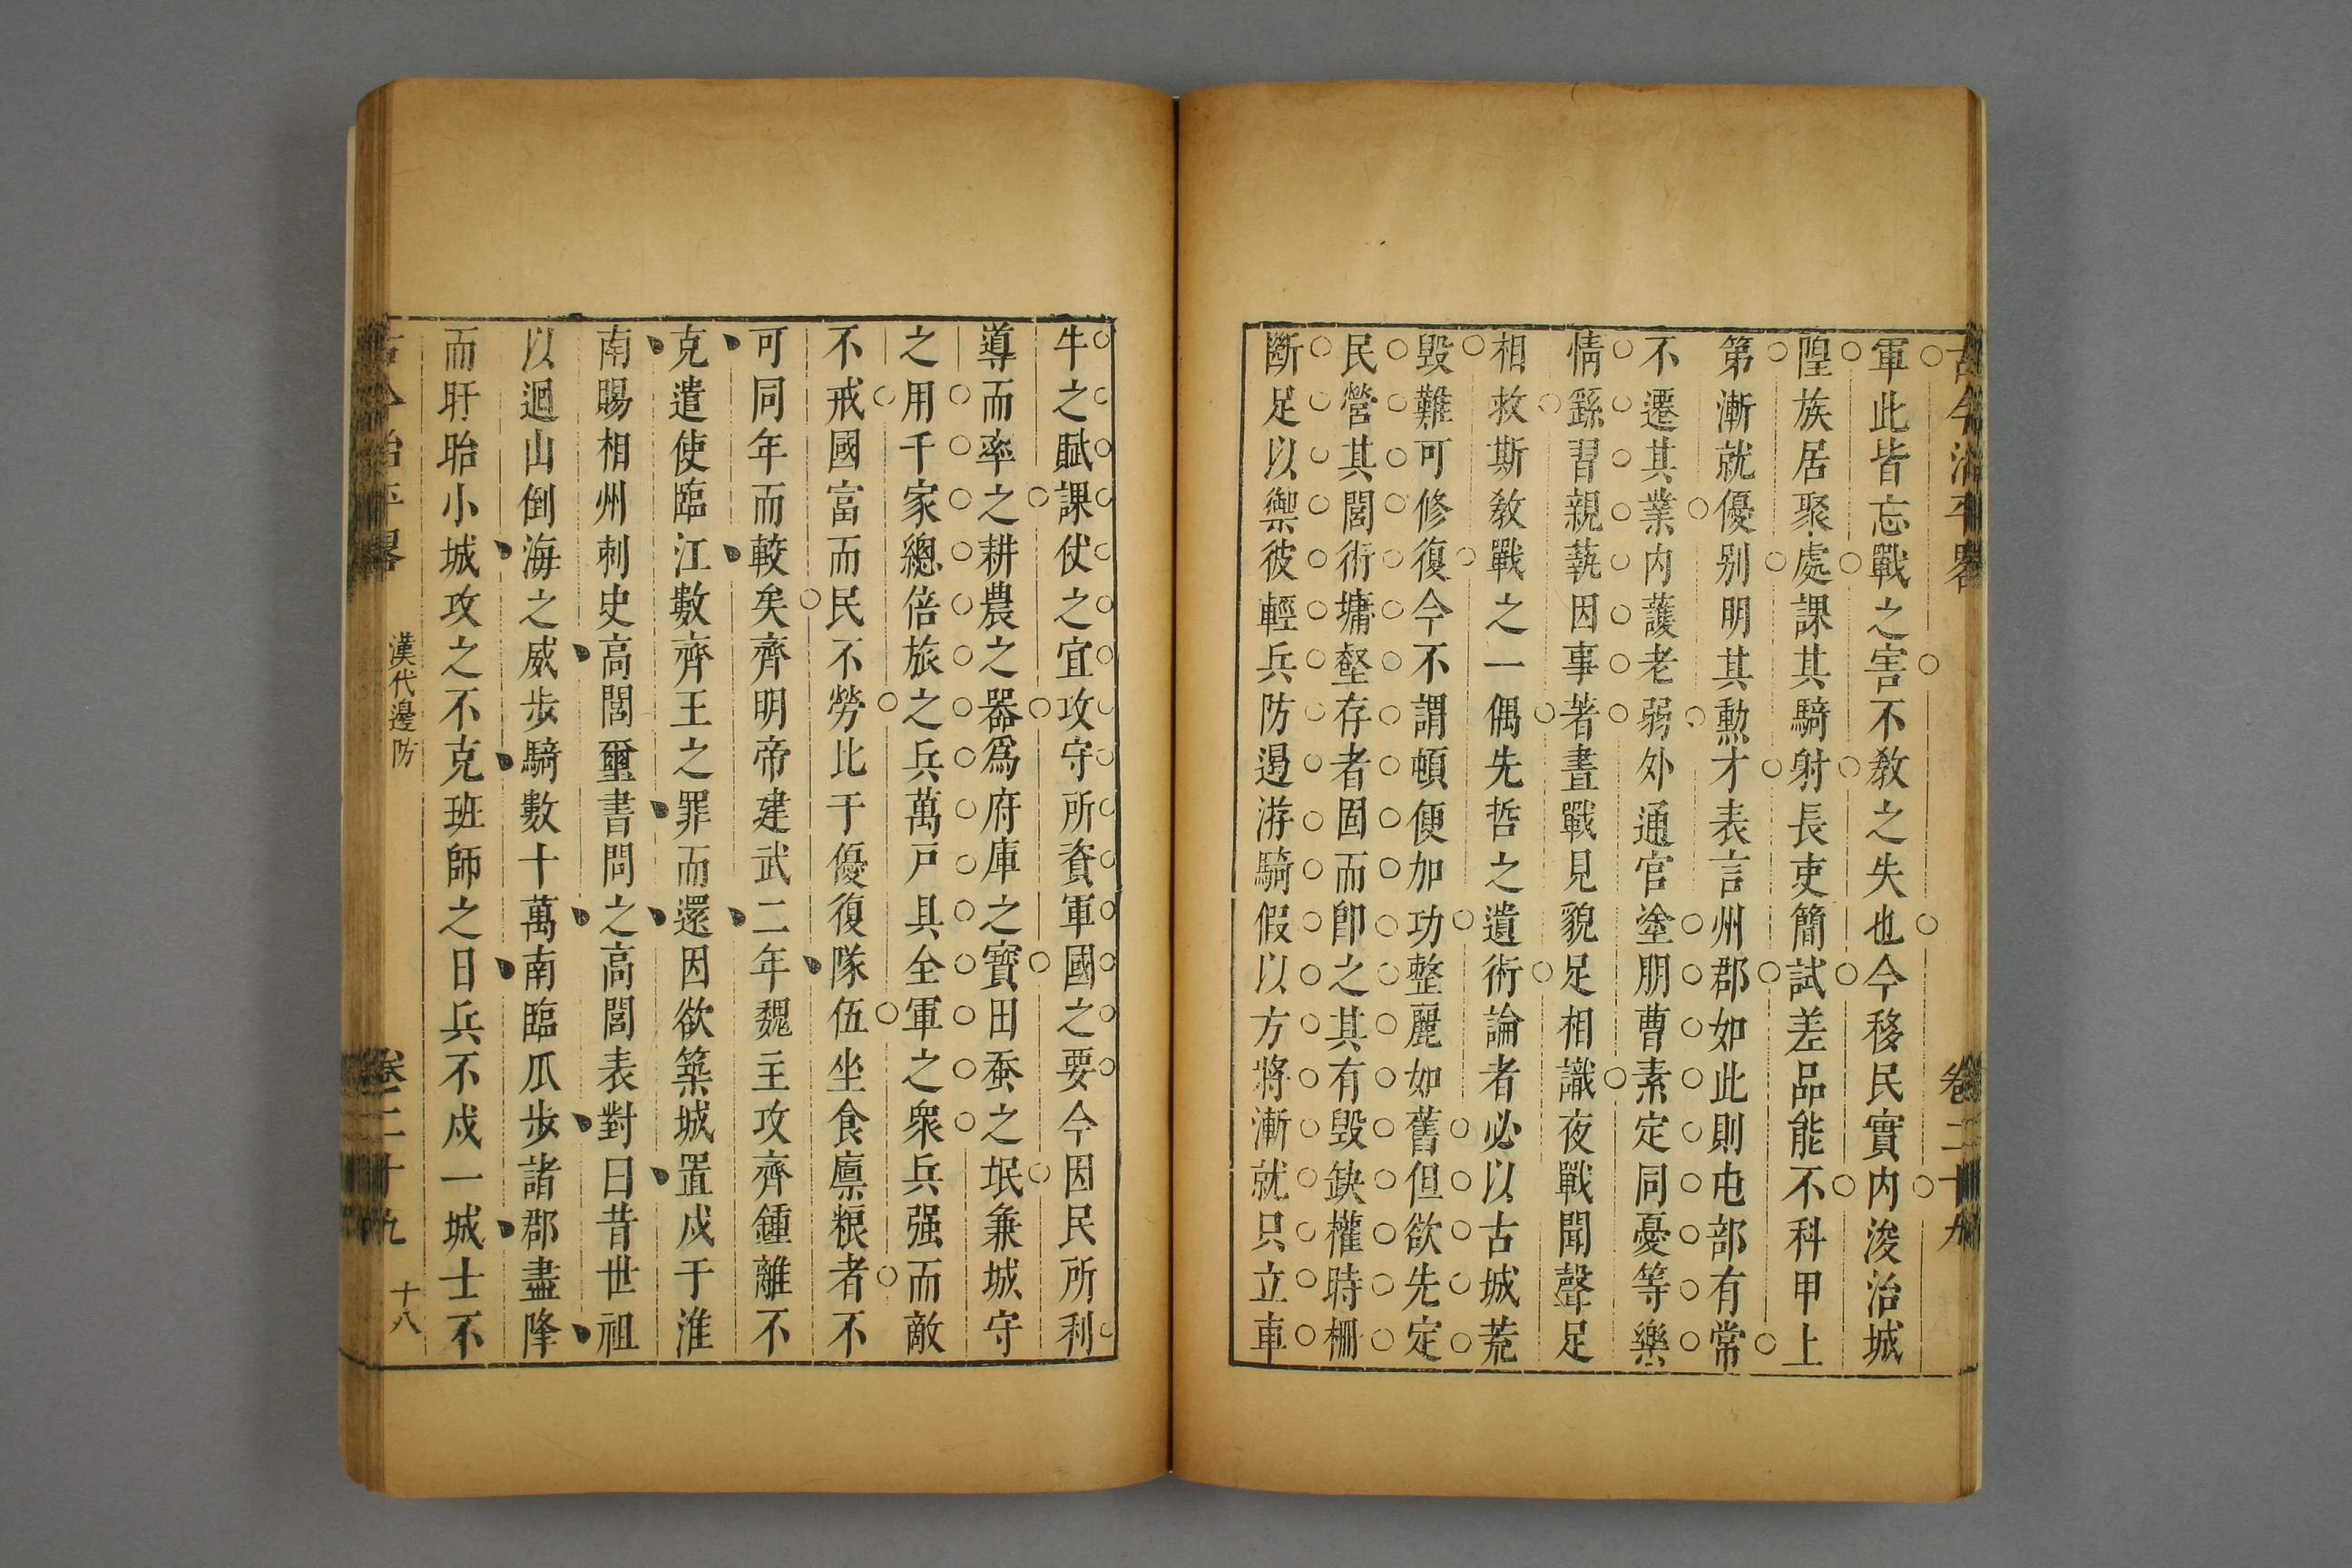 古今治平畧
卷二十九
軍此皆忘戰之害不敎之失也今移民實内浚治城
隍族居聚處課其騎射長吏簡試差品能不科甲上
第漸就優别明其勲才表言州郡如此則屯部有常
不遷其業内護老弱外通官塗朋曹素定同憂等樂
情繇習親藝因事著晝戰見貌足相識夜戰聞聲足
相救斯敎戰之一偶先哲之遺術論者必以古城荒
毁難可修復今不謂頓便加功整麗如舊但欲先定
民營其閭術墉壑存者固而卽之其有毁缺權時柵
斷足以禦彼輕兵防遏游騎假以方將漸就只立車
牛之賦課仗之宜攻守所資軍國之要今因民所利
導而率之耕農之器爲府庫之寳田蚕之氓兼城守
之用千家總倍旅之兵萬戸具全軍之衆兵强而敵
不戒國富而民不勞比于優復隊伍坐食廪粮者不
可同年而較矣齊明帝建武二年魏主攻齊鍾離不
克遣使臨江數齊王之罪而還因欲築城置戍于淮
南賜相州刺史高閭璽書問之高閭表對曰昔世祖
以迴山倒海之威步騎數十萬南臨瓜步諸郡盡降
而盱眙小城攻之不克班師之日兵不戍一城士不
古今治平畧
漢代邊防
卷二十九
十八